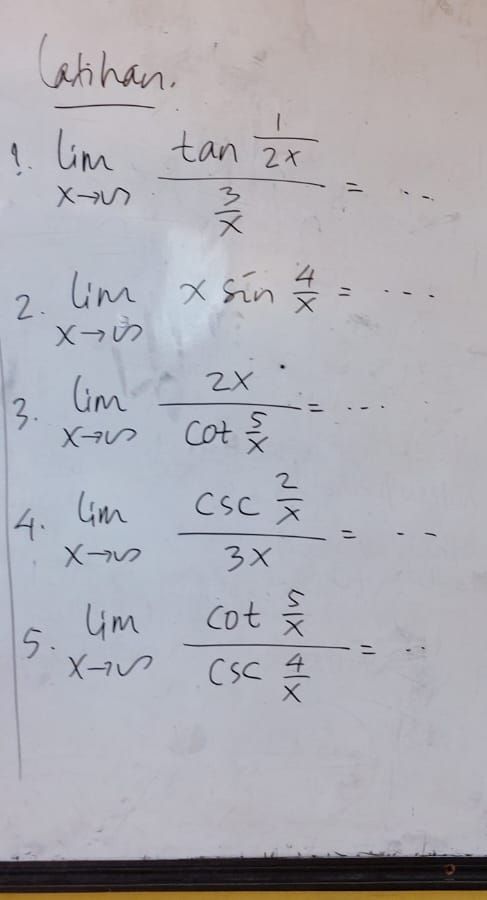 Latihan.
1. lim x→∞ (tan 1/2x)/(3/x) = ..
2. lim x→∞ x sin 4/x = ...
3. lim x→∞ 2x/(cot 5/x) = ...
4. lim x→∞ (csc 2/x)/3x = ..
5. lim x→∞ (cot 5/x)/(csc 4/x) = ..